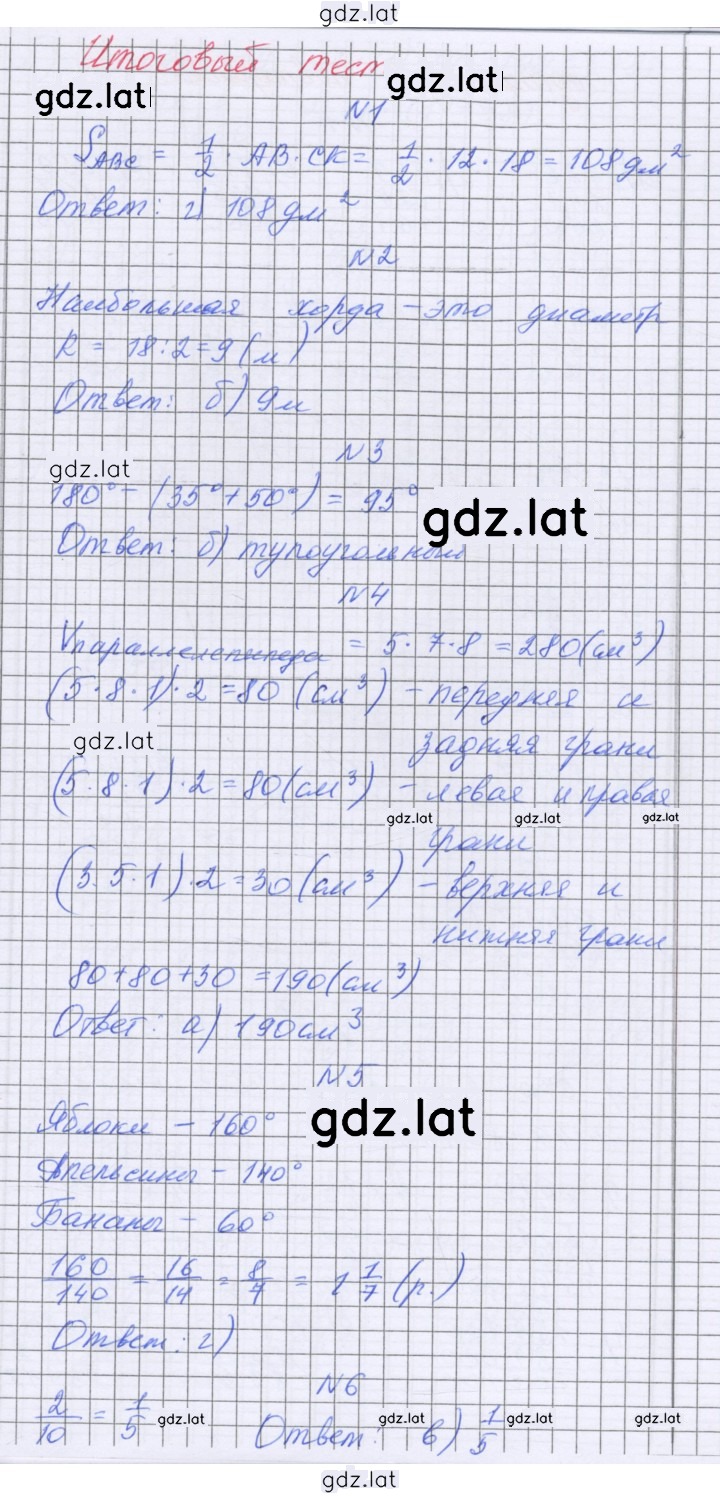 gdz.lat
Итоговый тест
gdz.lat gdz.lat
№1
S_ABC = 1/2 · AB · CK = 1/2 · 12 · 18 = 108 дм²
Ответ: г) 108 дм²
№2
Наибольшая хорда – это диаметр
R = 18 : 2 = 9 (м)
Ответ: б) 9м
№3
gdz.lat
180° – (35° + 50°) = 95°
gdz.lat
Ответ: б) тупоугольный
№4
Vпараллелепипеда = 5 · 7 · 8 = 280 (см³)
(5 · 8 · 1) · 2 = 80 (см³) – передняя и
gdz.lat задняя грани
(5 · 8 · 1) · 2 = 80 (см³) – левая и правая
gdz.lat gdz.lat gdz.lat
грани
(3 · 5 · 1) · 2 = 30 (см³) – верхняя и
нижняя грани
80 + 80 + 30 = 190 (см³)
Ответ: а) 190 см³
№5
Яблоки – 160°
gdz.lat
Апельсины – 140°
Бананы – 60°
160/140 = 16/14 = 8/7 = 1 1/7 (р.)
Ответ: г)
№6
2/10 = 1/5 Ответ: в) 1/5
gdz.lat gdz.lat gdz.lat gdz.lat
gdz.lat